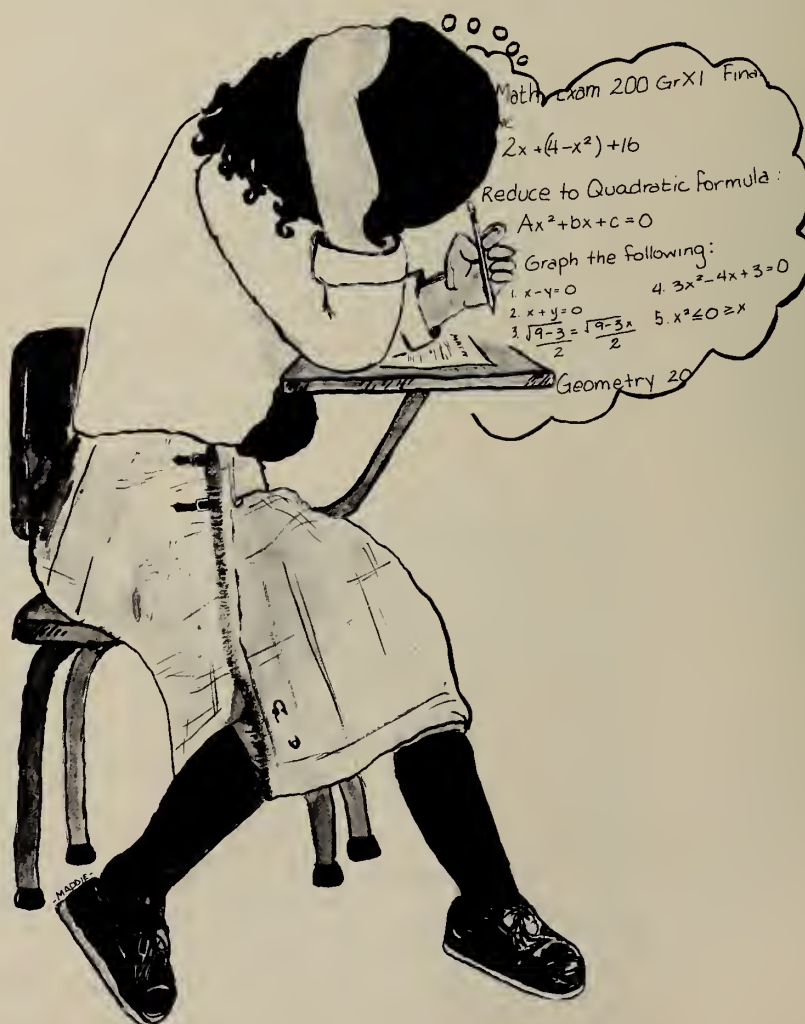 Math Exam 200 Gr XI Final
2x+(4-x²)+16
Reduce to Quadratic formula:
Ax²+bx+c=0
Graph the following:
1. x-y=0
2. x+y=0
3. √9-3/2 = √9-3x/2
4. 3x²-4x+3=0
5. x²≤0≥x
Geometry 20
MATH
-MADDIE-